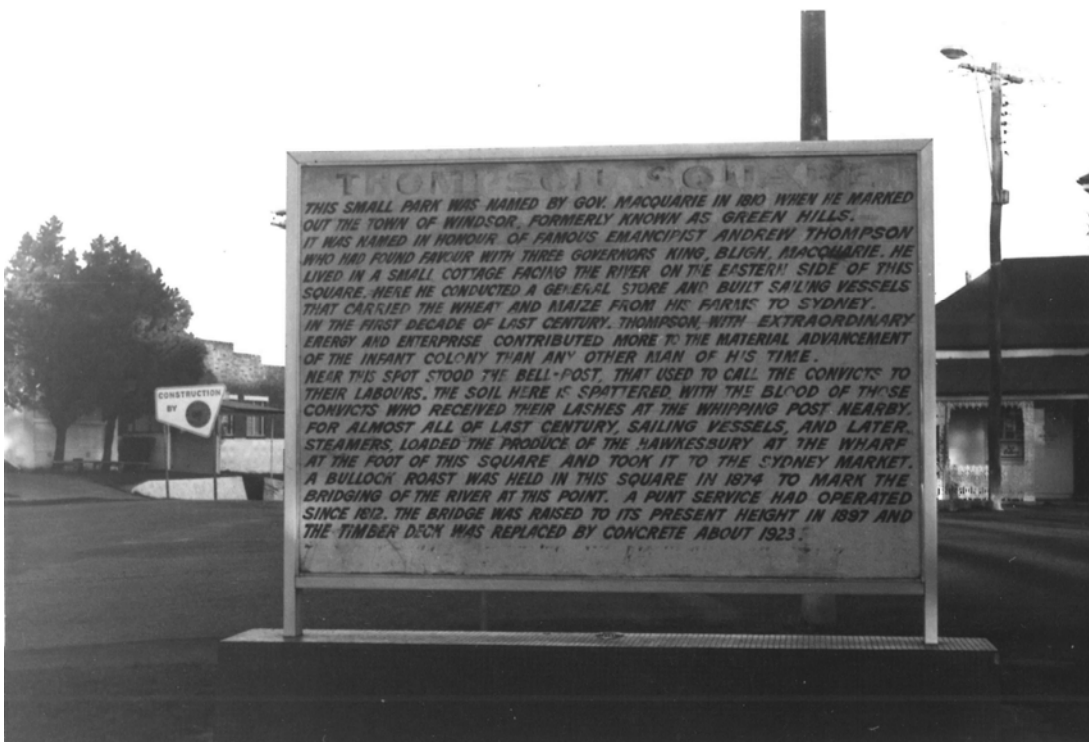 THOMPSON SQUARE
THIS SMALL PARK WAS NAMED BY GOV. MACQUARIE IN 1810 WHEN HE MARKED
OUT THE TOWN OF WINDSOR, FORMERLY KNOWN AS GREEN HILLS.
IT WAS NAMED IN HONOUR OF FAMOUS EMANCIPIST ANDREW THOMPSON
WHO HAD FOUND FAVOUR WITH THREE GOVERNORS KING, BLIGH, MACQUARIE. HE
LIVED IN A SMALL COTTAGE FACING THE RIVER ON THE EASTERN SIDE OF THIS
SQUARE. HERE HE CONDUCTED A GENERAL STORE AND BUILT SAILING VESSELS
THAT CARRIED THE WHEAT AND MAIZE FROM HIS FARMS TO SYDNEY.
IN THE FIRST DECADE OF LAST CENTURY. THOMPSON, WITH EXTRAORDINARY
ENERGY AND ENTERPRISE CONTRIBUTED MORE TO THE MATERIAL ADVANCEMENT
OF THE INFANT COLONY THAN ANY OTHER MAN OF HIS TIME.
NEAR THIS SPOT STOOD THE BELL-POST, THAT USED TO CALL THE CONVICTS TO
THEIR LABOURS. THE SOIL HERE IS SPATTERED WITH THE BLOOD OF THOSE
CONVICTS WHO RECEIVED THEIR LASHES AT THE WHIPPING POST NEARBY.
FOR ALMOST ALL OF LAST CENTURY, SAILING VESSELS, AND LATER
STEAMERS, LOADED THE PRODUCE OF THE HAWKESBURY AT THE WHARF
AT THE FOOT OF THIS SQUARE AND TOOK IT TO THE SYDNEY MARKET.
A BULLOCK ROAST WAS HELD IN THIS SQUARE IN 1874 TO MARK THE
BRIDGING OF THE RIVER AT THIS POINT. A PUNT SERVICE HAD OPERATED
SINCE 1812. THE BRIDGE WAS RAISED TO ITS PRESENT HEIGHT IN 1897 AND
THE TIMBER DECK WAS REPLACED BY CONCRETE ABOUT 1923.
CONSTRUCTION
BY